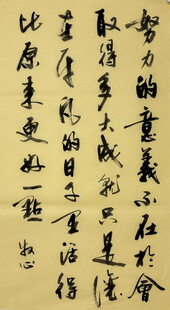 努力的意義不在於會
取得多大成就只是讓
在平凡的日子里活得
比原来更好一點
牧心